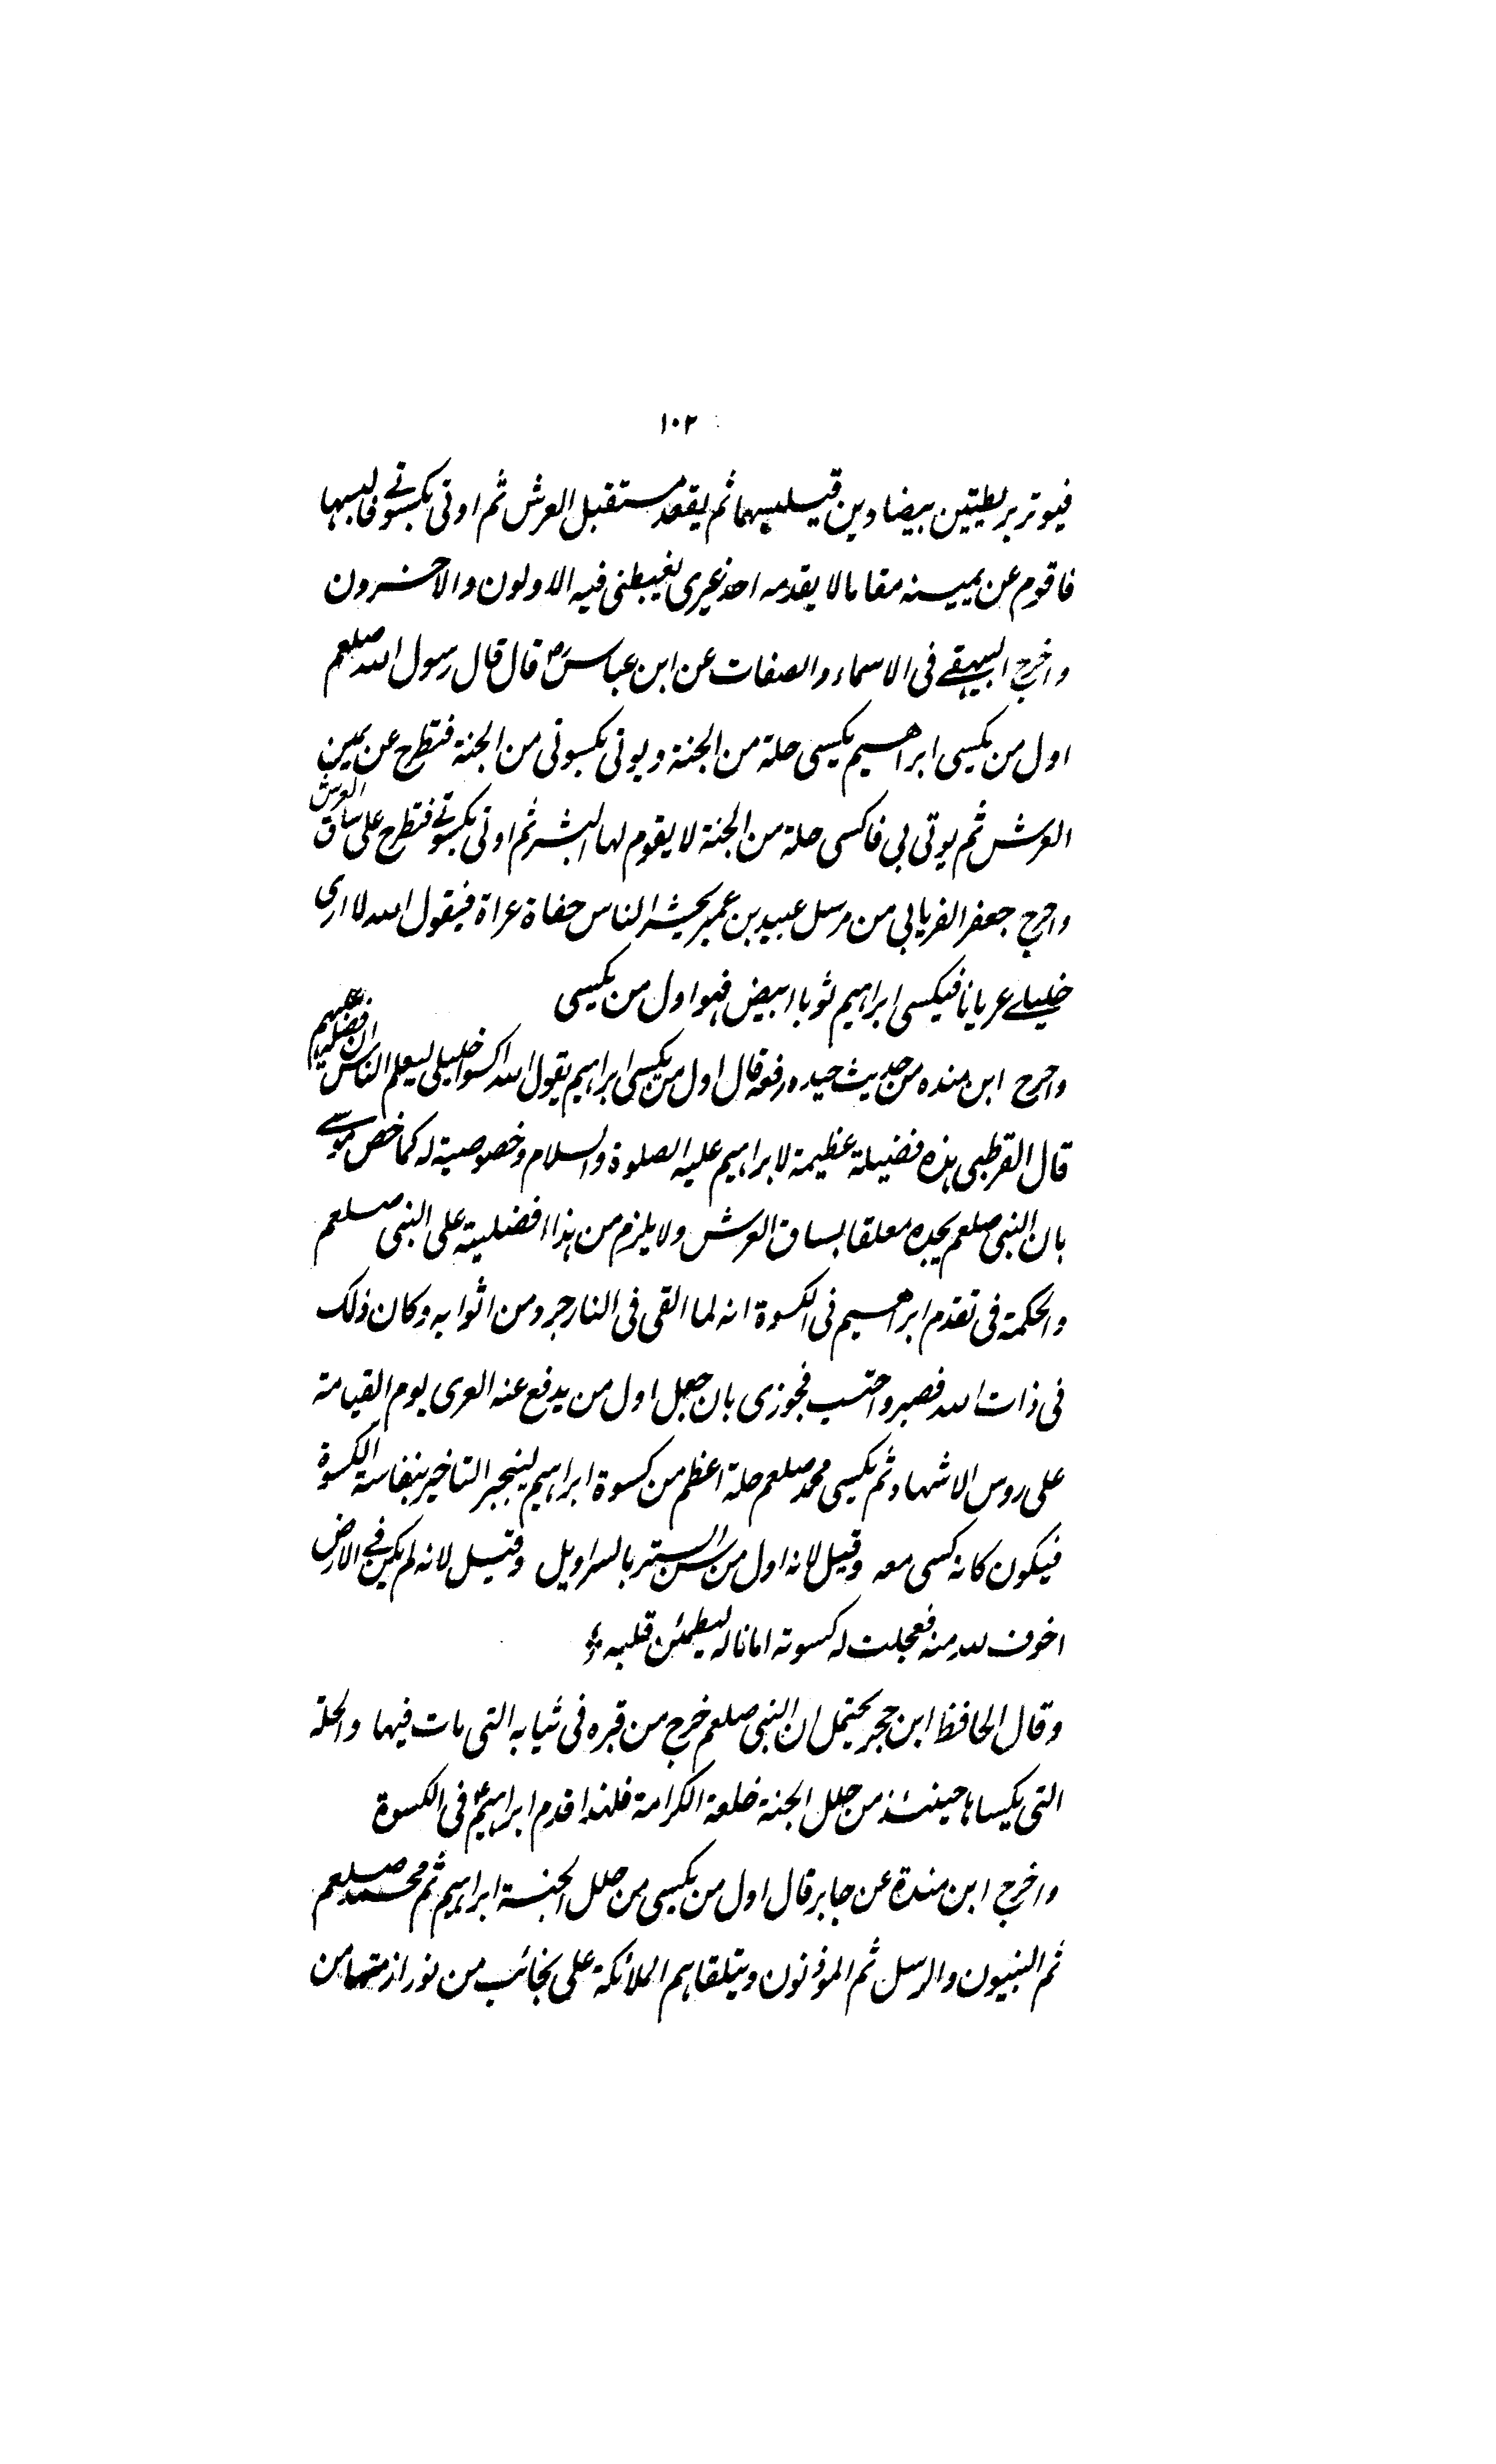 ١٠٢
فيوتر بريطتين بيضاوين فيلبسهما ثم يقعد مستقبل العرش ثم اوتى بكسوتي فالبسها
فاقوم عن يمينه مقاما لا يقدمه احد غيرى يغبطنى فيه الاولون والاخرون
واخرج البيهقے فى الاسماء والصفات عن ابن عباسؓ قال قال رسول الله صلعم
اول من يكسى ابراهيم يكسى حلة من الجنة ويوتى بكسوتى من الجنة فتطرح عن يمين
العرش ثم يوتى بى فاكسى حلة من الجنة لا يقوم لها البشر ثم اوتى بكسوتے فتطرح على ساق العرش
واخرج جعفر الفريابى من مرسل عبيد بن عمير يحشر الناس حفاة عراة فيقول الله لا ارى
خليلے عريانا فيكسى ابراهيم ثوبا ابيض فهو اول من يكسى
واخرج ابن منده من حديث حيده رفعه قال اول من يكسى ابراهيم يقول الله اكسوا خليلى ليعلم الناس ان فضليه عليهم
قال القرطبى هذه فضيلة عظيمة لابراهيم عليه الصلوة والسلام وخصوصية له كما خص موسے
بان النبى صلعم يجده معلقا بساق العرش ولا يلزم من هذا افضليته على النبى صلعم
والحكمة فى تقدم ابراهيم فى الكسوة انه لما القى فى النار جرد من اثوابه وكان ذلك
فى ذات الله فصبر واحتسب فجوزى بان جعل اول من يدفع عنه العرى يوم القيامة
على روس الاشهاد ثم يكسى محمد صلعم حلة اعظم من كسوة ابراهيم لينجبر التاخير بنفاسة الكسوة
فيكون كانه كسى معه وقيل لانه اول من استن الستر بالسراويل وقيل لانه لم يكن فے الارض
اخوف لله منه فعجلت له كسوته امانا له ليطمئن قلبه
وقال الحافظ ابن حجر يحتمل ان النبى صلعم خرج من قبره فى ثيابه التى مات فيها والحلة
التى يكساها حينئذ من حلل الجنة خلعة الكرامة فلهذا قدم ابراهيمؑ فى الكسوة
واخرج ابن مندة عن جابر قال اول من يكسى من حلل الجنة ابراهيم ثم محمد صلعم
ثم النبيون والرسل ثم الموذنون ويتلقاهم الملائكة على نجائب من نور ازمتها من